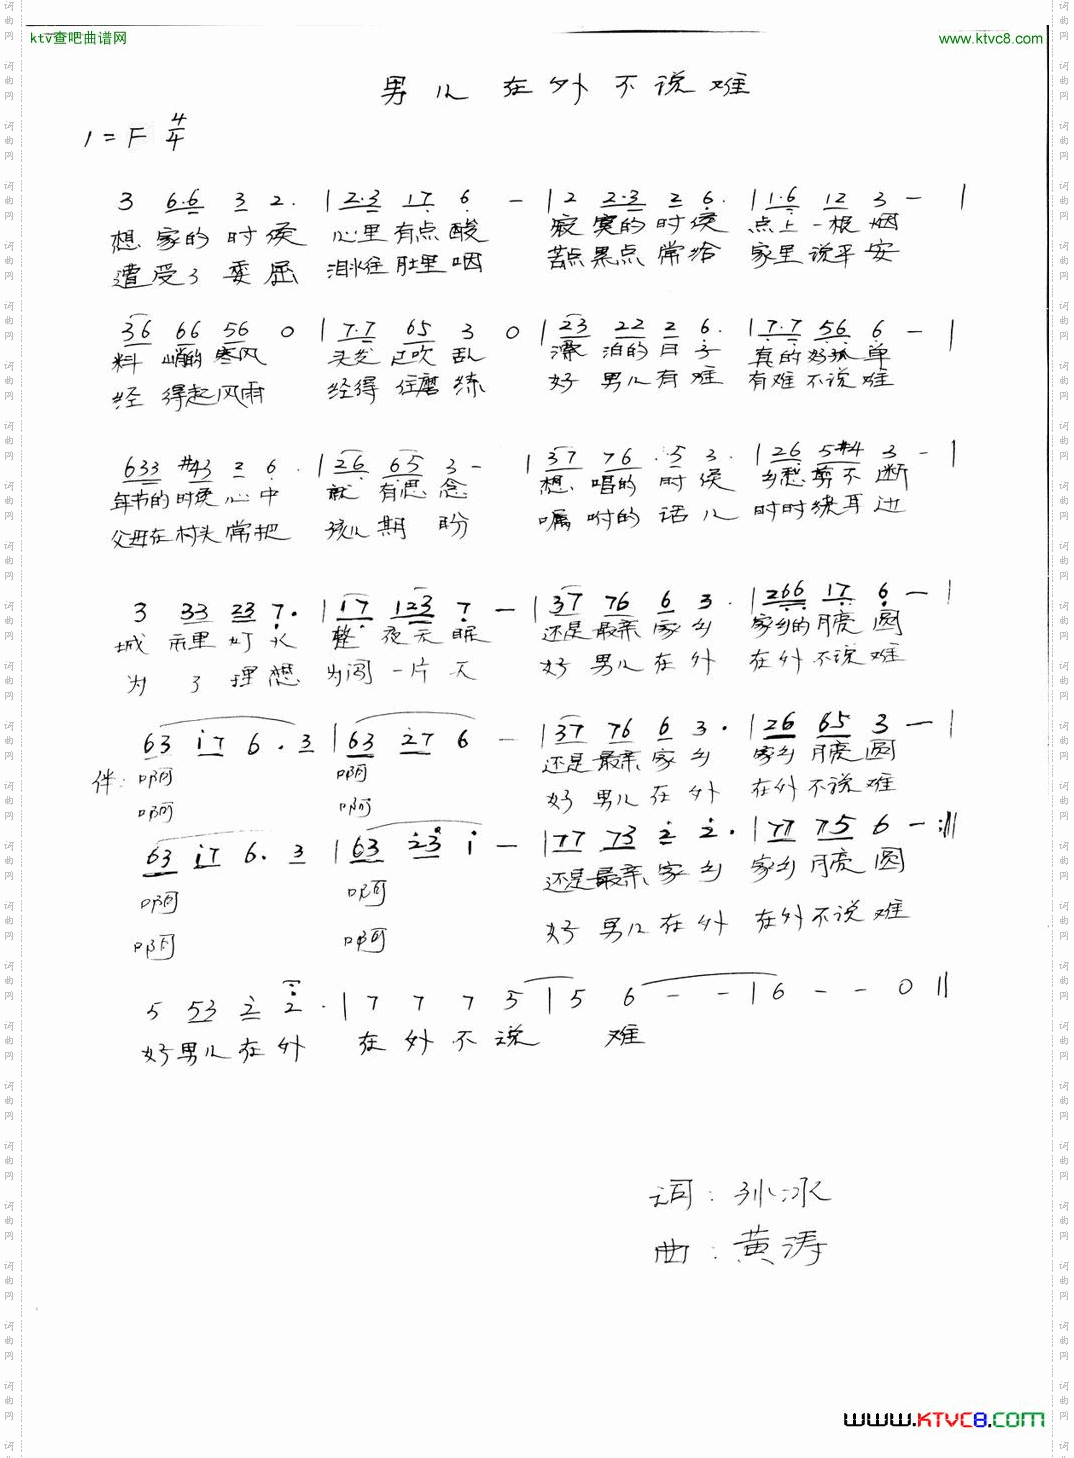 ktv查吧曲谱网
www.ktvc8.com
男儿在外不说难
1=F 4/4
3 6·6 3 2· | 2·3 17 6 - | 2 2·3 2 6· | 1·6 12 3 - |
想家的时侯 心里有点酸 寂寞的时侯 点上一根烟
遭受了委屈 泪水往肚里咽 苦点累点常给 家里说平安
36 66 56 0 | 7·7 65 3 0 | 23 22 2 6· | 7·7 56 6 - |
料峭的寒风 头发已吹乱 漂泊的日子 真的好孤单
经得起风雨 经得住磨练 好男儿有难 有难不说难
633 #43 2 6· | 26 65 3 - | 37 76 5 3· | 26 5#4 3 - |
年节的时侯心中 就有思念 想唱的时侯 乡愁剪不断
父母在村头常把 孩儿期盼 嘱咐的话儿 时时绕耳边
3 33 23 7· | 17 123 7 - | 37 76 6 3· | 266 17 6 - |
城市里灯火 整夜无眠 还是最亲家乡 家乡的月亮圆
为了理想 为闯一片天 好男儿在外 在外不说难
63 i7 6· 3 | 63 27 6 - | 37 76 6 3· | 26 65 3 - |
伴: 啊 啊 还是最亲家乡 家乡月亮圆
啊 啊 好男儿在外 在外不说难
63 i7 6· 3 | 63 23 i - | 77 73 2 2· | 77 75 6 - :||
啊 啊 还是最亲家乡 家乡月亮圆
啊 啊 好男儿在外 在外不说难
5 53 2 2· | 7 7 7 5 | 5 6 - - | 6 - - 0 ||
好男儿在外 在外不说 难
词: 孙冰
曲: 黄涛
www.KTVC8.com